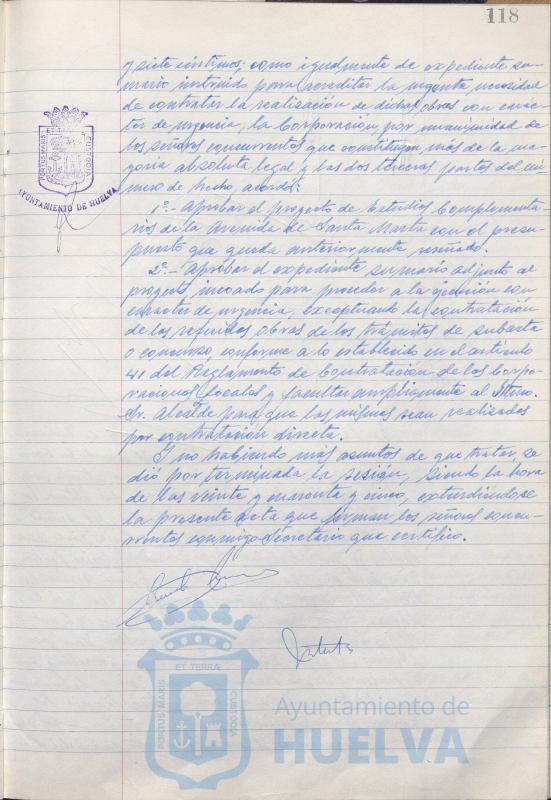 118
y siete céntimos; como igualmente de expediente su-
mario instruido para acreditar la urgente necesidad
de contratar la realización de dichas obras con carác-
ter de urgencia, la Corporación, por unanimidad de
los señores concurrentes que constituyen más de la ma-
yoria absoluta legal y las dos terceras partes del nú-
mero de hecho acordó:
1º.- Aprobar el proyecto de Estudios Complementa-
rios de la Avenida de Santa Marta con el presu-
puesto que queda anteriormente reseñado.
2º.- Aprobar el expediente sumario adjunto al
proyecto incoado para proceder a la ejecución con
caracter de urgencia, exceptuando la contratación
de las referidas obras de los trámites de subasta
o concurso, conforme a lo establecido en el artículo
41 del Reglamento de Contratación de las Corpo-
raciones Locales y facultar ampliamente al Iltmo.
Sr. Alcalde para que las mismas sean realizadas
por contratación directa.
Y no habiendo más asuntos de que tratar, se
dió por terminada la sesión, siendo la hora
de las veinte y cuarenta y cinco, extendiéndose
la presente acta que firman los señores concu-
rrentes conmigo Secretario que certifico.
PORTUS MARIS ET TERRÆ CUSTODIA
AYUNTAMIENTO DE HUELVA
PORTUS MARIS ET TERRÆ CUSTODIA
Ayuntamiento de
HUELVA